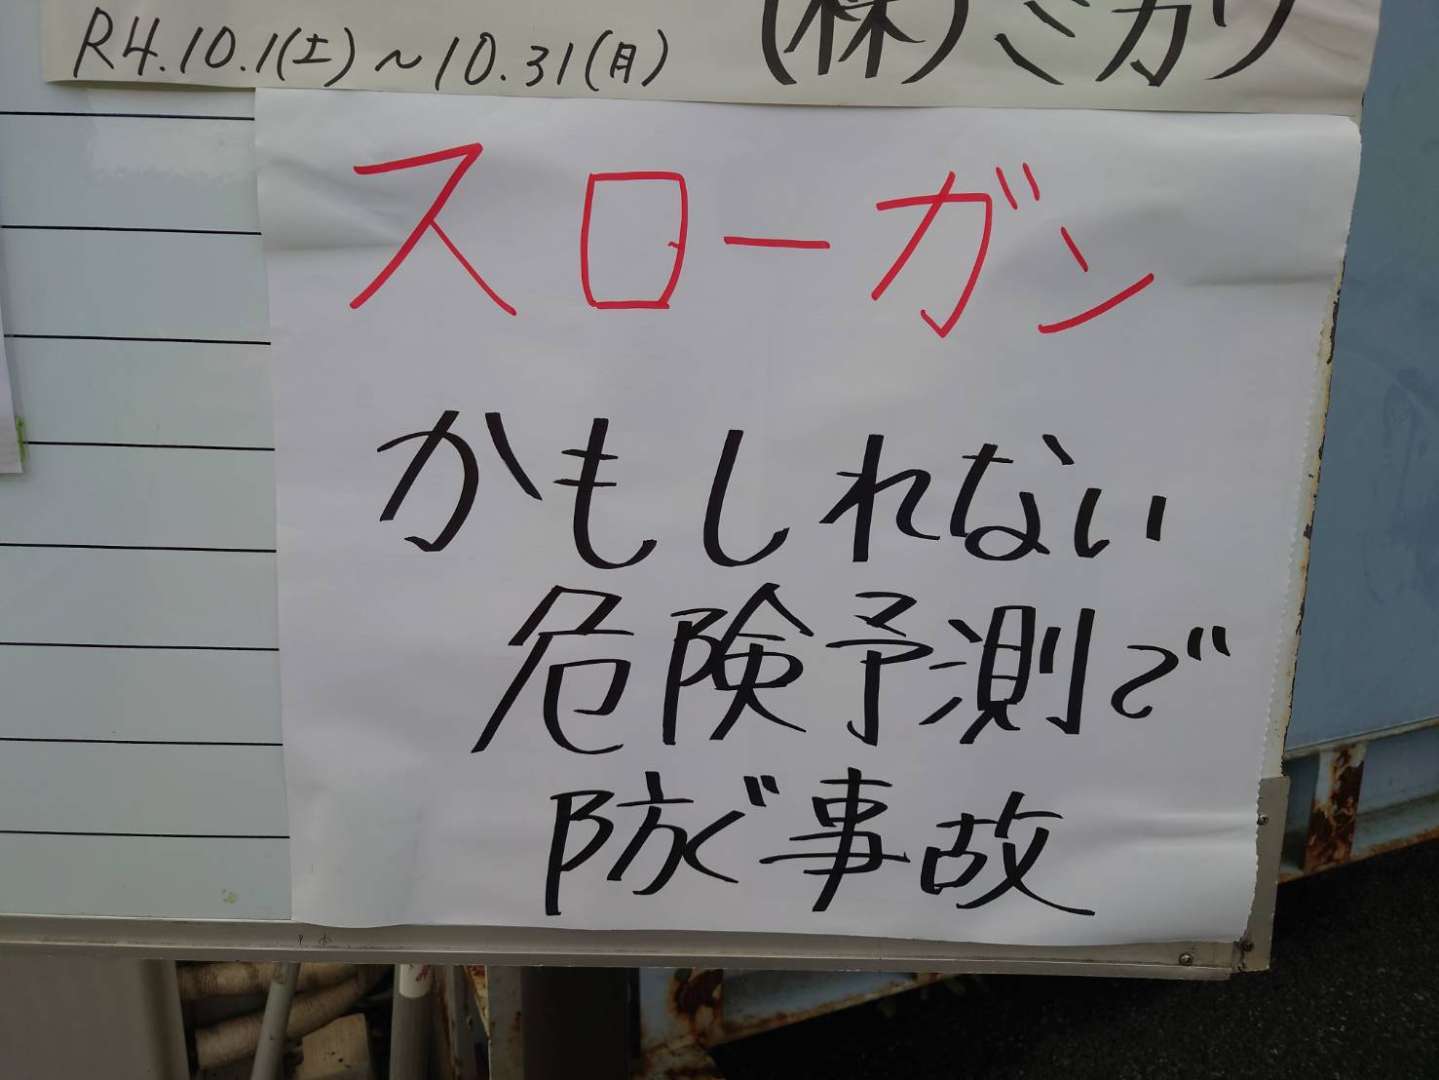 R4.10.1(土)～10.31(月)
(株)ミカワ
スローガン
かもしれない
危険予測で
防ぐ事故